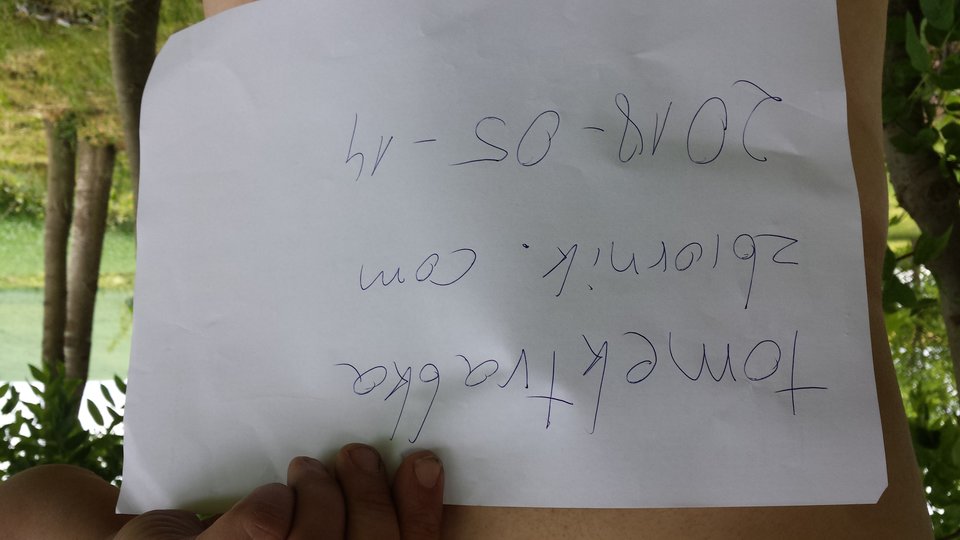 tomektrabka
zbiornik.com
2018-05-14